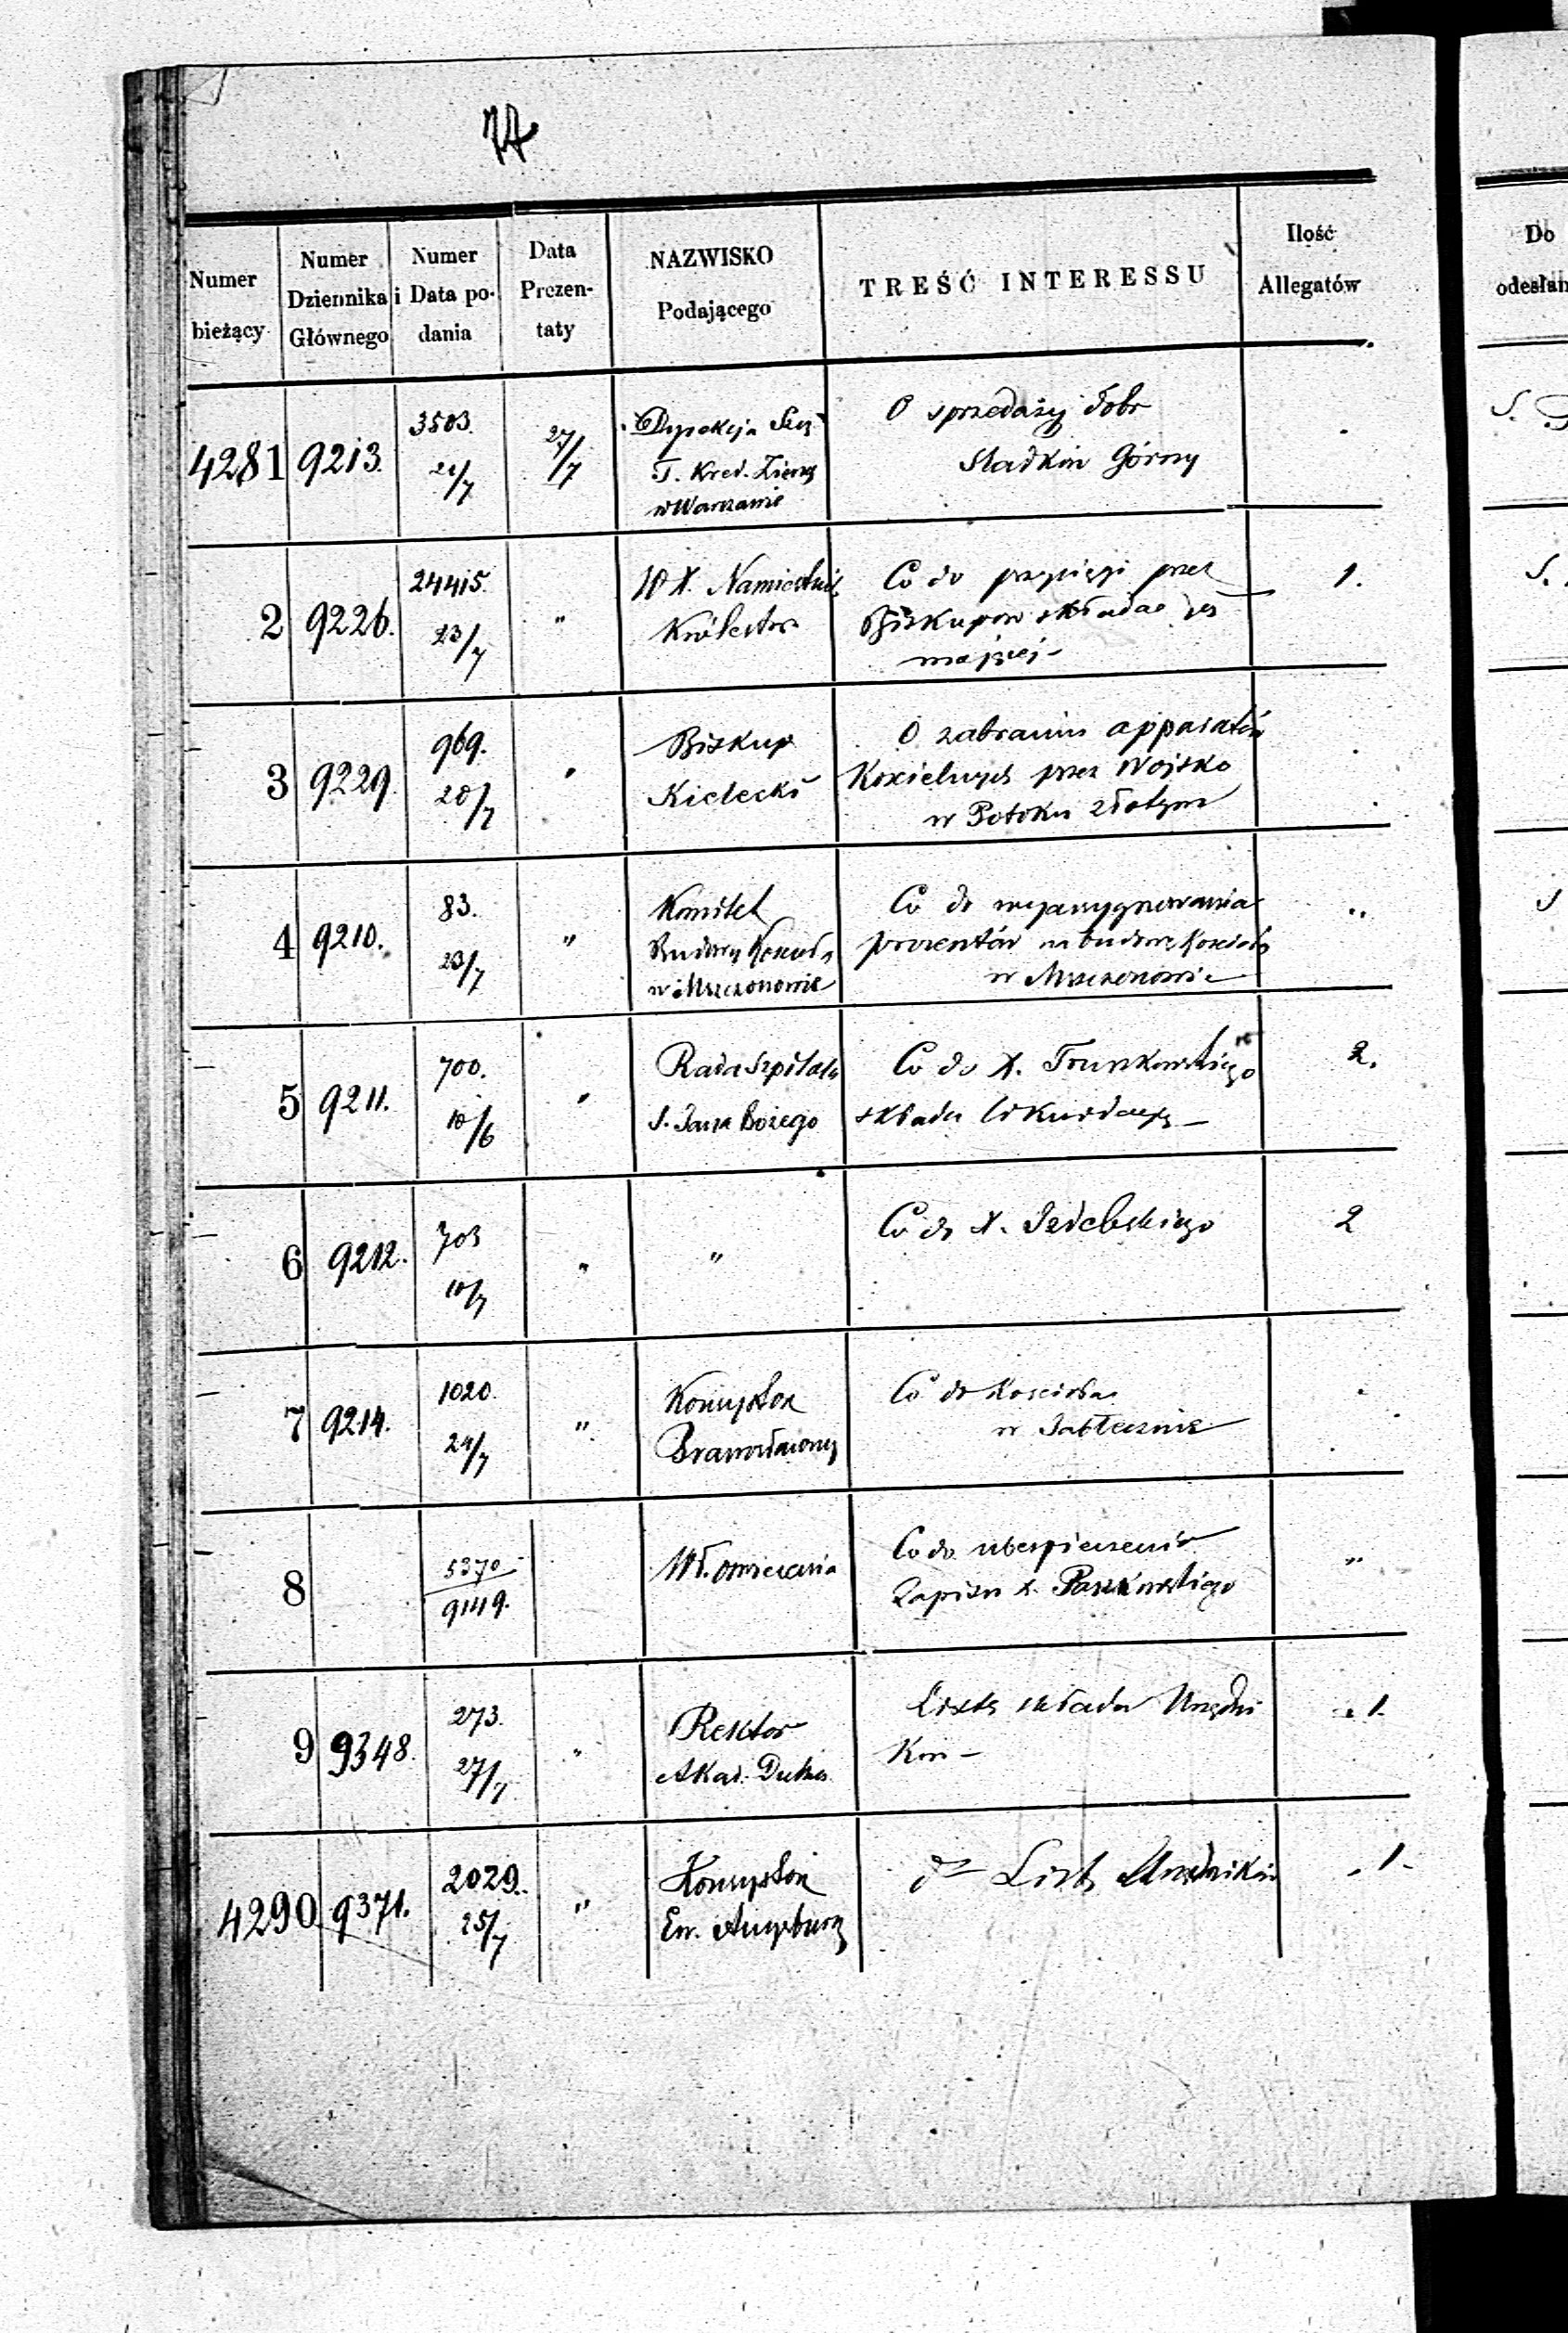 Numer bieżący
Numer Dziennika Głównego
Numer i Data podania
Data Prezentaty
NAZWISKO Podającego
TREŚĆ INTERESSU
Ilość Allegatów
Do
4281 9213. 3503. 21/7 27/7
Dyrekcja
T. Kred. Ziems
w Warszawie
O sprzedaży dóbr
Sladków Górny
2 9226. 24415. 23/7 "
Namiestnik
Królestwa
Co do przysięgi przez
Biskupów składać się
mającej -
1.
3 9229. 969. 20/7 "
Biskup
Kielecki
O zabraniu apparatów
Kościelnych przez Wojsko
w Potoku złotym
4 9210. 83. 23/7 "
Komitet
Budowy Kościoła
w Mszczonowie
Co do wyassygnowania
procentów na budowę Kościoła
w Mszczonowie
"
5 9211. 700. 10/6 "
Rada Szpitala
S. Jana Bożego
Co do X.
składa
2.
6 9212. 703 10/7 "
"
Co do X. Izdebskiego
2
7 9214. 1020. 24/7 "
Konsystorz
Prawosławny
Co do Kościoła
w Jabłecznie
8 5370 9149.
Włościanie
Co do ubezpieczenia
Zapisu X. Paszkowskiego
"
9 9348. 273. 27/7 "
Rektor
Akad. Duchow.
Listę składa Urzędni
ków -
1
4290 9371. 2029. 25/7 "
Konsystorz
Ew. Augsburg
Listę Urzędników
1